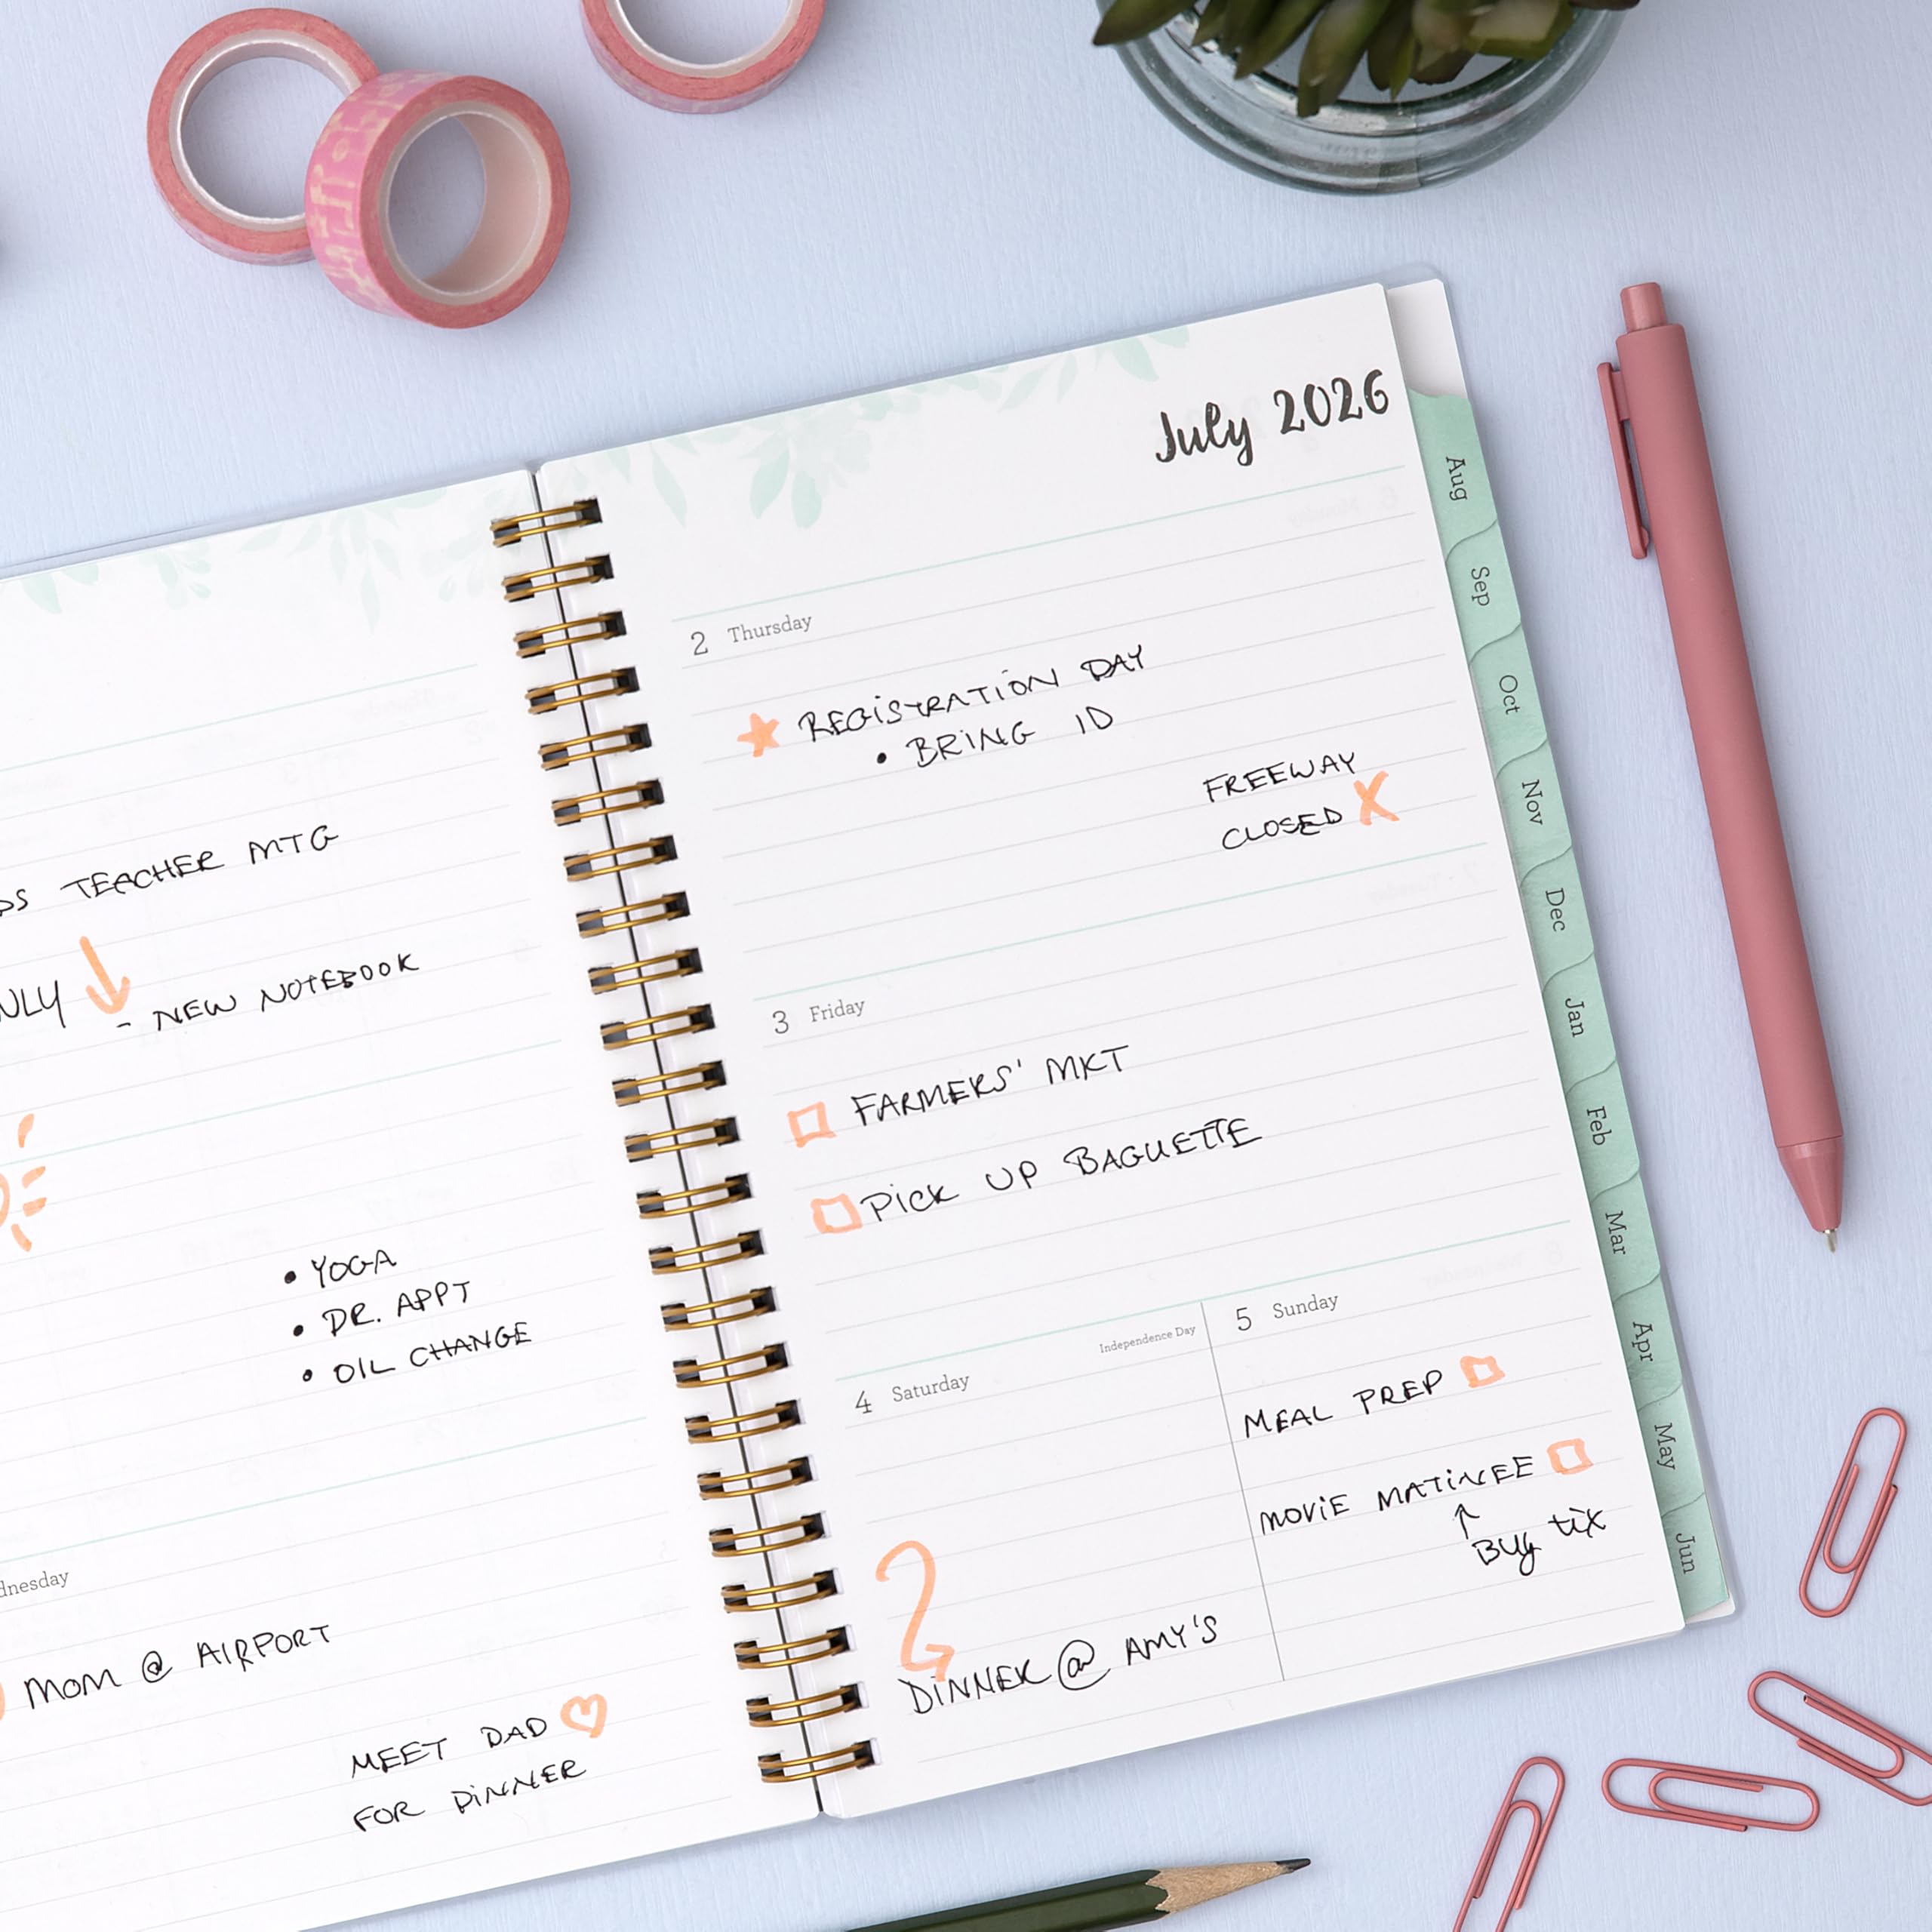 TEACHER MTG
- NEW NOTEBOOK
• YOGA
• DR. APPT
• OIL CHANGE
MOM @ AIRPORT
MEET DAD
FOR DINNER
July 2026
2 Thursday
REGISTRATION DAY
• BRING ID
FREEWAY
CLOSED X
3 Friday
FARMERS' MKT
PICK UP BAGUETTE
4 Saturday
Independence Day
DINNER @ AMY'S
5 Sunday
MEAL PREP
MOVIE MATINEE
↑
BUY tix
Aug
Sep
Oct
Nov
Dec
Jan
Feb
Mar
Apr
May
Jun